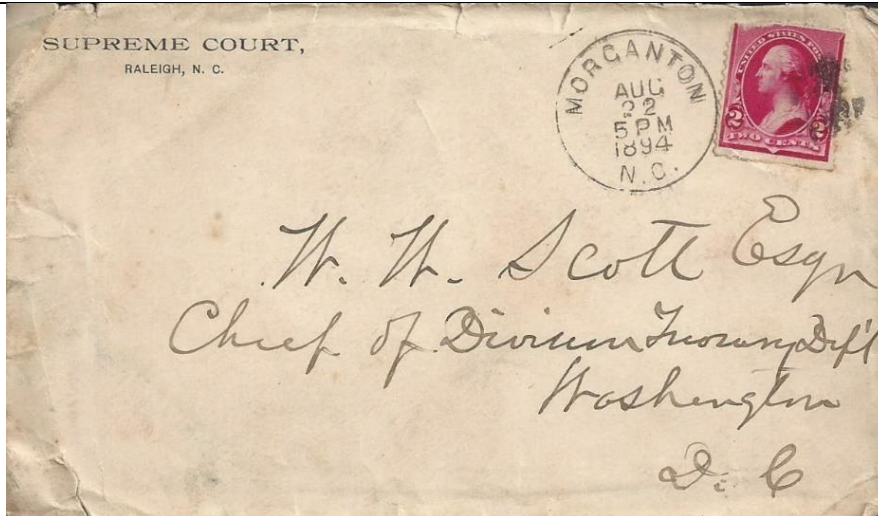 SUPREME COURT,
RALEIGH, N. C.
MORGANTON
AUG
22
5 PM
1894
N.C.
UNITED STATES PO
2 2
TWO CENTS
W. W. Scott Esqr
Chief of Division Treasury Dep't
Washington
D. C